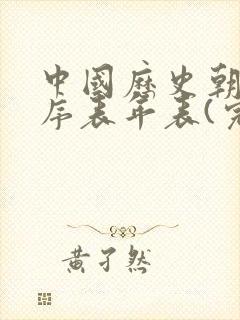 中國歷史朝
序表年表(完
黄孑然